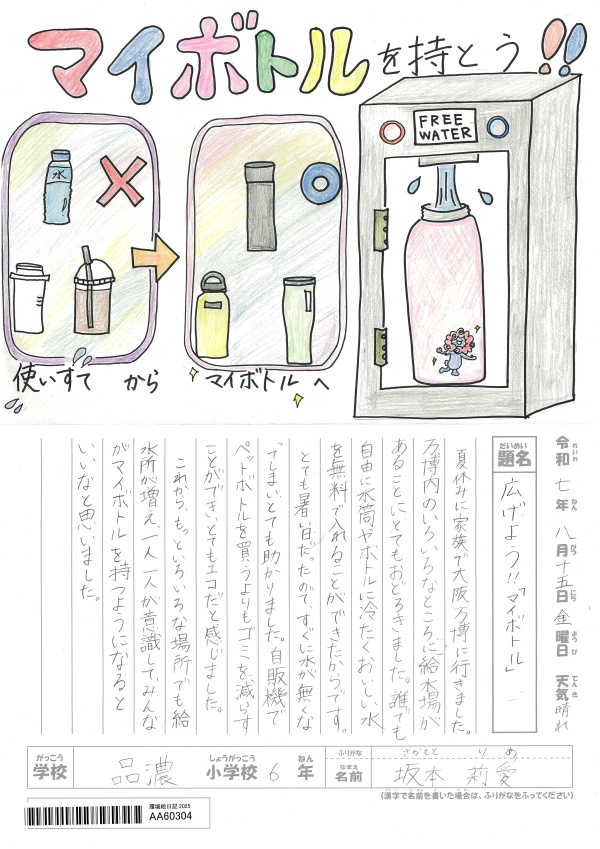 マイボトルを持とう!!
FREE
WATER
水
使いすて から マイボトル へ
令和 七年 八月 十五日 金曜日 天気 晴れ
れいわ ねん がつ にち ようび てんき
だいめい
題名
広げよう!!「マイボトル」
夏休みに家族で大阪万博に行きました。
万博内のいろいろなところに給水場が
あることにとてもおどろきました。誰でも
自由に水筒やボトルに冷たくおいしい水
を無料で入れることができたからです。
とても暑い日だったので、すぐに水が無くな
ってしまいとても助かりました。自販機で
ペットボトルを買うよりもゴミを減らす
ことができ、とてもエコだと感じました。
これから、もっといろいろな場所でも給
水所が増え、一人一人が意識して、みんな
がマイボトルを持つようになると
いいなと思いました。
がっこう しょうがっこう ねん ふりがな さかもと りあ
学校 品濃 小学校 6 年 なまえ 名前 坂本 莉愛
(漢字で名前を書いた場合は、ふりがなをふってください)
環境絵日記 2025
AA60304